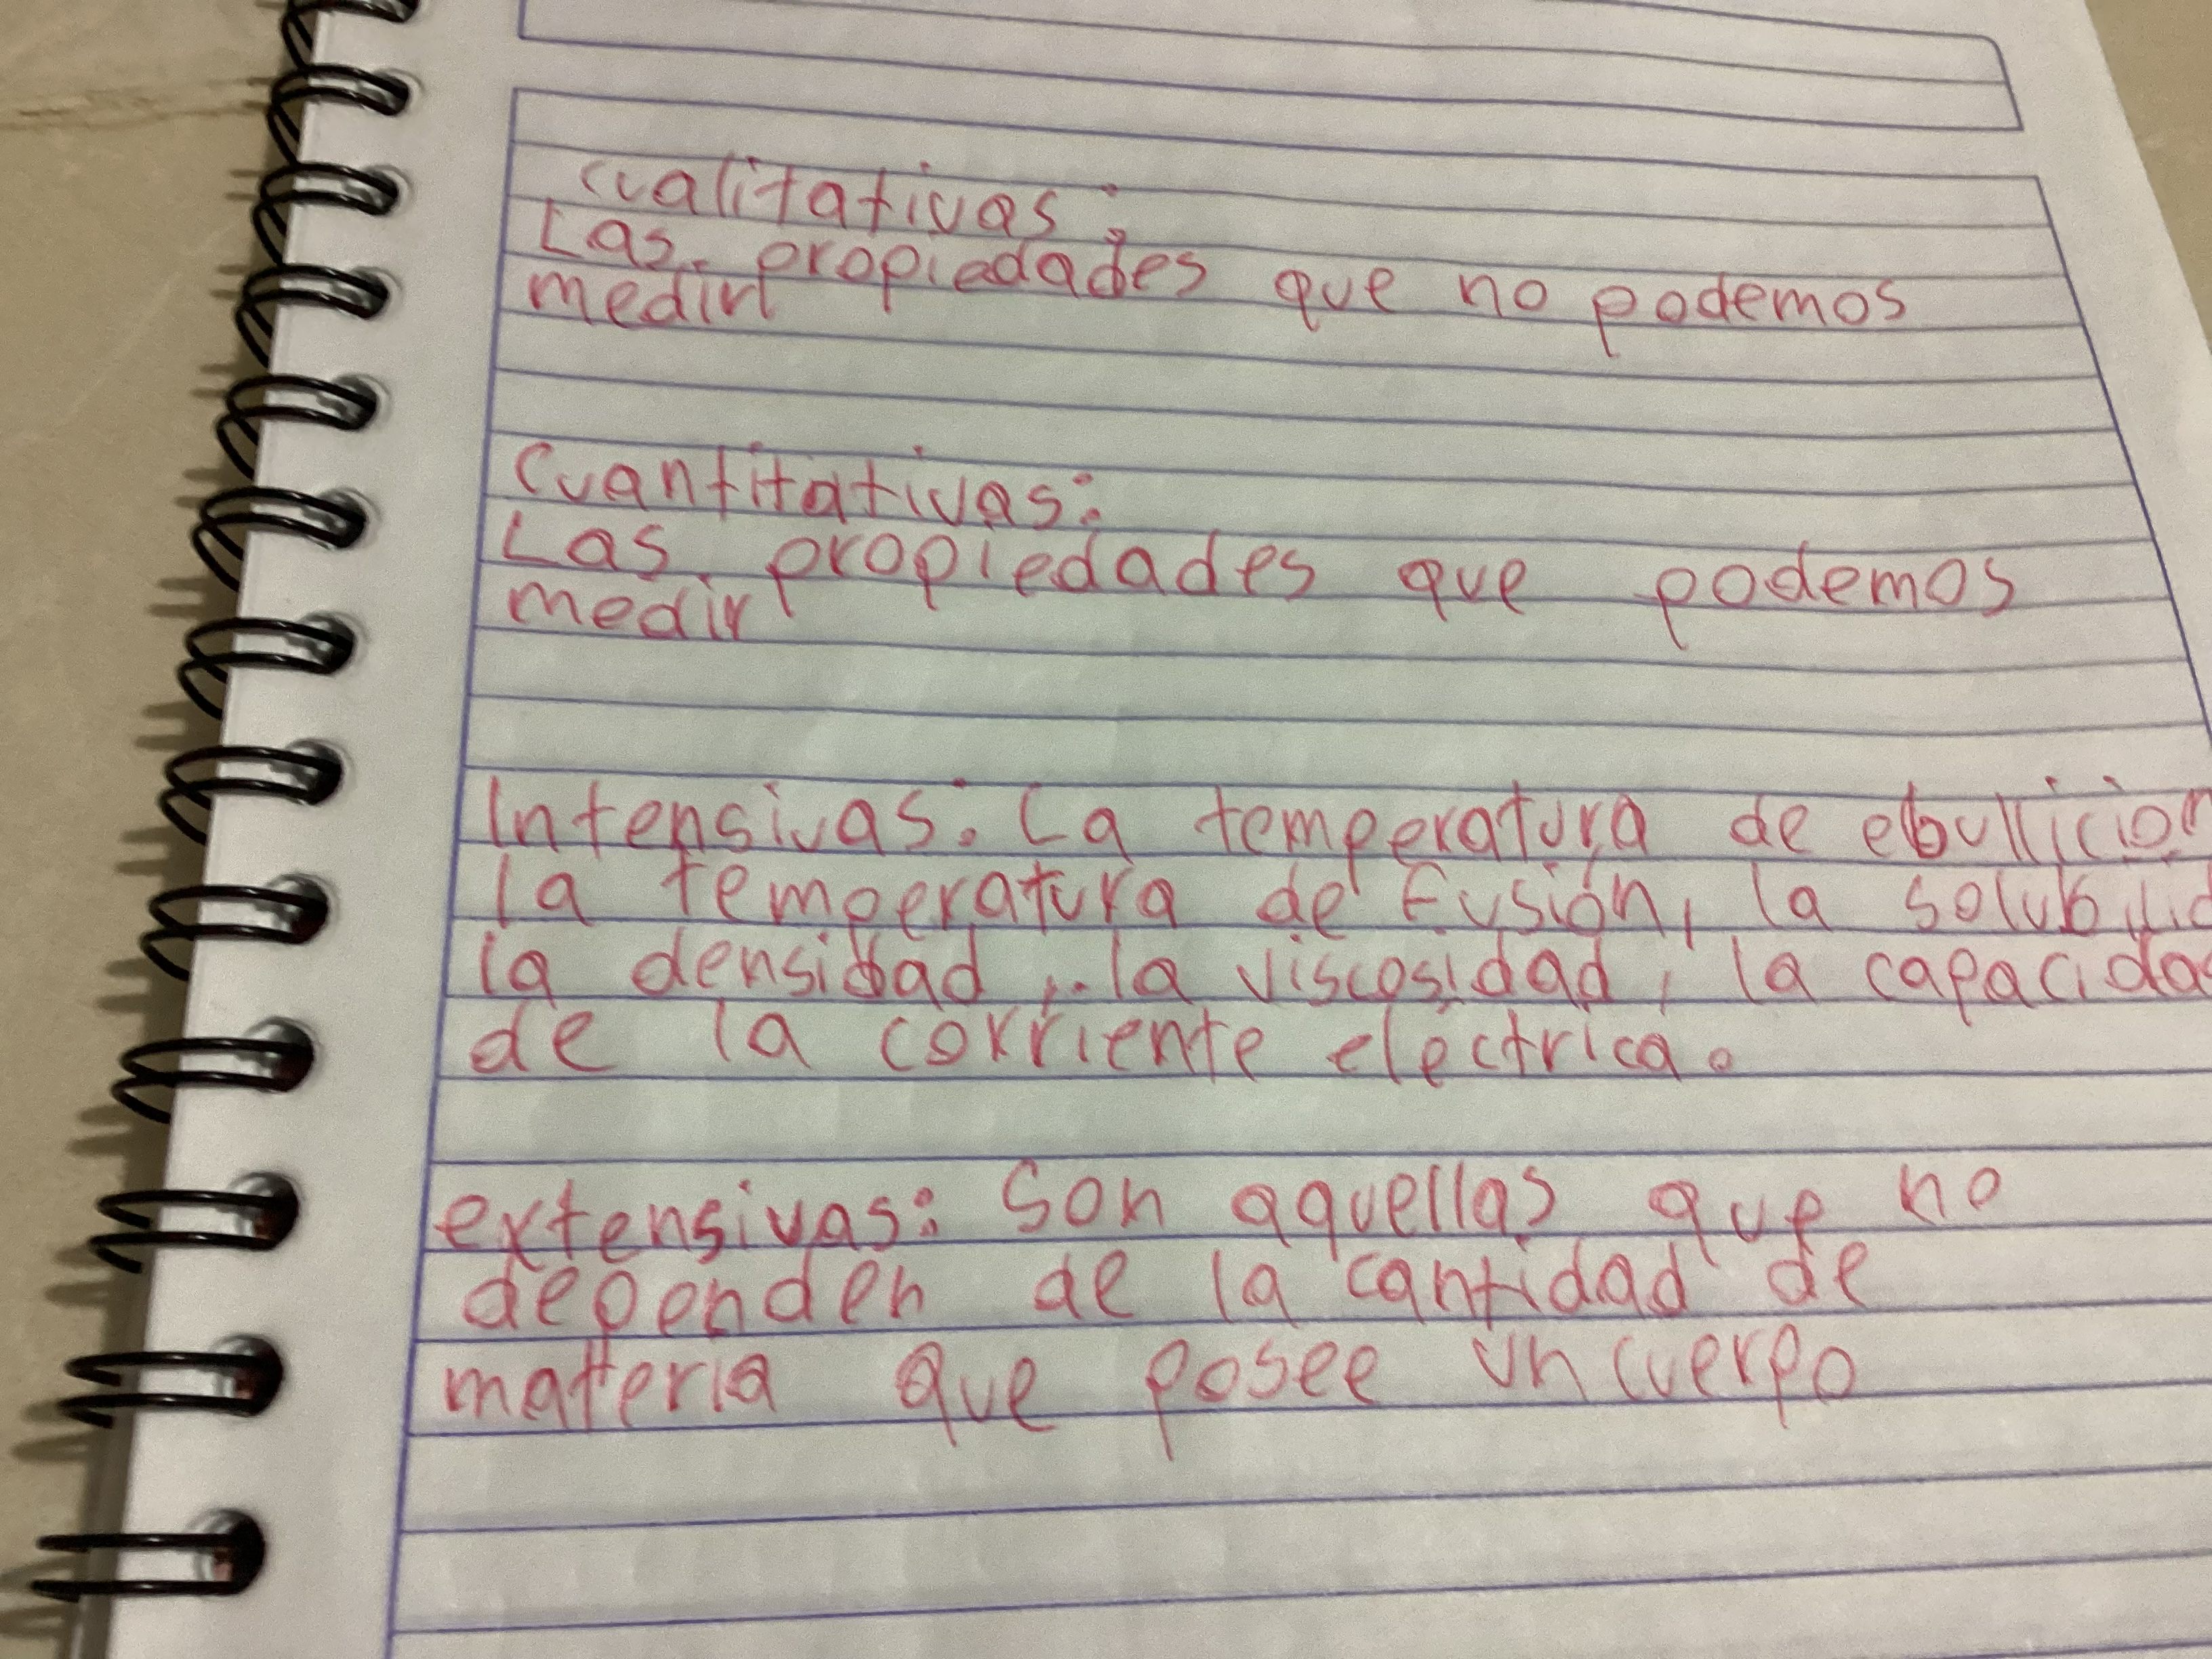 cualitativas:
Las propiedades que no podemos
medir
Cuantitativas:
Las propiedades que podemos
medir
Intensivas: La temperatura de ebullicion
la temperatura de fusión, la solubilid
la densidad, la viscosidad, la capacidad
de la corriente electrica.
extensivas: Son aquellas que no
dependen de la cantidad de
materia que posee un cuerpo